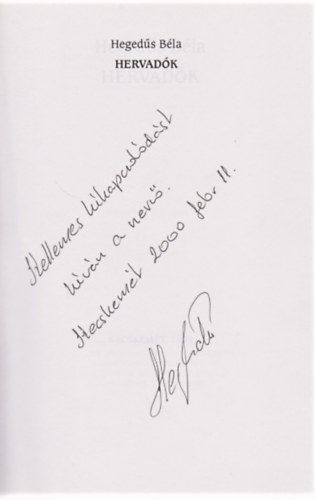 Hegedűs Béla
HERVADÓK
Kellemes kikapcsolódást
kíván a nevző.
Kecskemét 2000 febr 11.